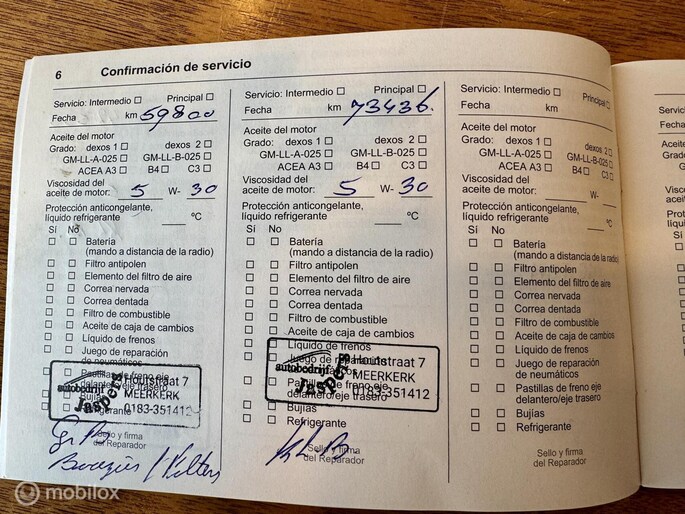 6 Confirmación de servicio
Servicio: Intermedio ☐ Principal ☐
Fecha km 59800
Aceite del motor
Grado: dexos 1 ☐ dexos 2 ☐
GM-LL-A-025 ☐ GM-LL-B-025 ☐
ACEA A3 ☐ B4 ☐ C3 ☐
Viscosidad del
aceite de motor: 5 W- 30
Protección anticongelante,
líquido refrigerante °C
Sí No
☐ ☐ Batería
(mando a distancia de la radio)
☐ ☐ Filtro antipolen
☐ ☐ Elemento del filtro de aire
☐ ☐ Correa nervada
☐ ☐ Correa dentada
☐ ☐ Filtro de combustible
☐ ☐ Aceite de caja de cambios
☐ ☐ Líquido de frenos
☐ ☐ Juego de reparación
de neumáticos
Pastillas de freno eje
delantero/eje trasero
Bujías
Refrigerante
autobedrijf
Jaspers
Houtstraat 7
MEERKERK
0183-351412
Sello y firma
del Reparador
Servicio: Intermedio ☐ Principal ☐
Fecha km 73436
Aceite del motor
Grado: dexos 1 ☐ dexos 2 ☐
GM-LL-A-025 ☐ GM-LL-B-025 ☐
ACEA A3 ☐ B4 ☐ C3 ☐
Viscosidad del
aceite de motor: 5 W- 30
Protección anticongelante,
líquido refrigerante °C
Sí No
☐ ☐ Batería
(mando a distancia de la radio)
☐ ☐ Filtro antipolen
☐ ☐ Elemento del filtro de aire
☐ ☐ Correa nervada
☐ ☐ Correa dentada
☐ ☐ Filtro de combustible
☐ ☐ Aceite de caja de cambios
☐ ☐ Líquido de frenos
☐ ☐ Juego de reparación
de neumáticos
☐ ☐ Pastillas de freno eje
delantero/eje trasero
☐ ☐ Bujías
☐ ☐ Refrigerante
autobedrijf
Jaspers
Houtstraat 7
MEERKERK
0183-351412
Sello y firma
del Reparador
Servicio: Intermedio ☐ Principal ☐
Fecha km
Aceite del motor
Grado: dexos 1 ☐ dexos 2 ☐
GM-LL-A-025 ☐ GM-LL-B-025 ☐
ACEA A3 ☐ B4 ☐ C3 ☐
Viscosidad del
aceite de motor: W-
Protección anticongelante,
líquido refrigerante °C
Sí No
☐ ☐ Batería
(mando a distancia de la radio)
☐ ☐ Filtro antipolen
☐ ☐ Elemento del filtro de aire
☐ ☐ Correa nervada
☐ ☐ Correa dentada
☐ ☐ Filtro de combustible
☐ ☐ Aceite de caja de cambios
☐ ☐ Líquido de frenos
☐ ☐ Juego de reparación
de neumáticos
☐ ☐ Pastillas de freno eje
delantero/eje trasero
☐ ☐ Bujías
☐ ☐ Refrigerante
Sello y firma
del Reparador
mobilox